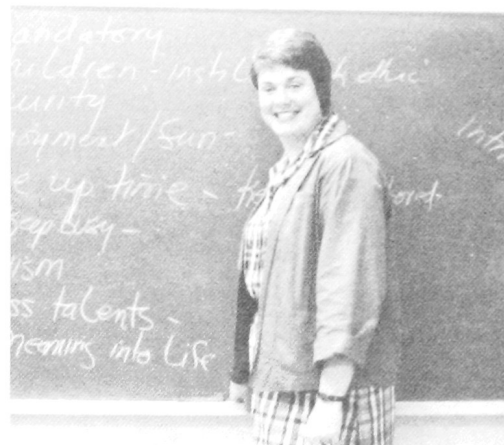 andatory
hildren - instil ethic
urity
oyment / Fun -
e up time -
keep busy -
ism
ss talents -
meaning into Life